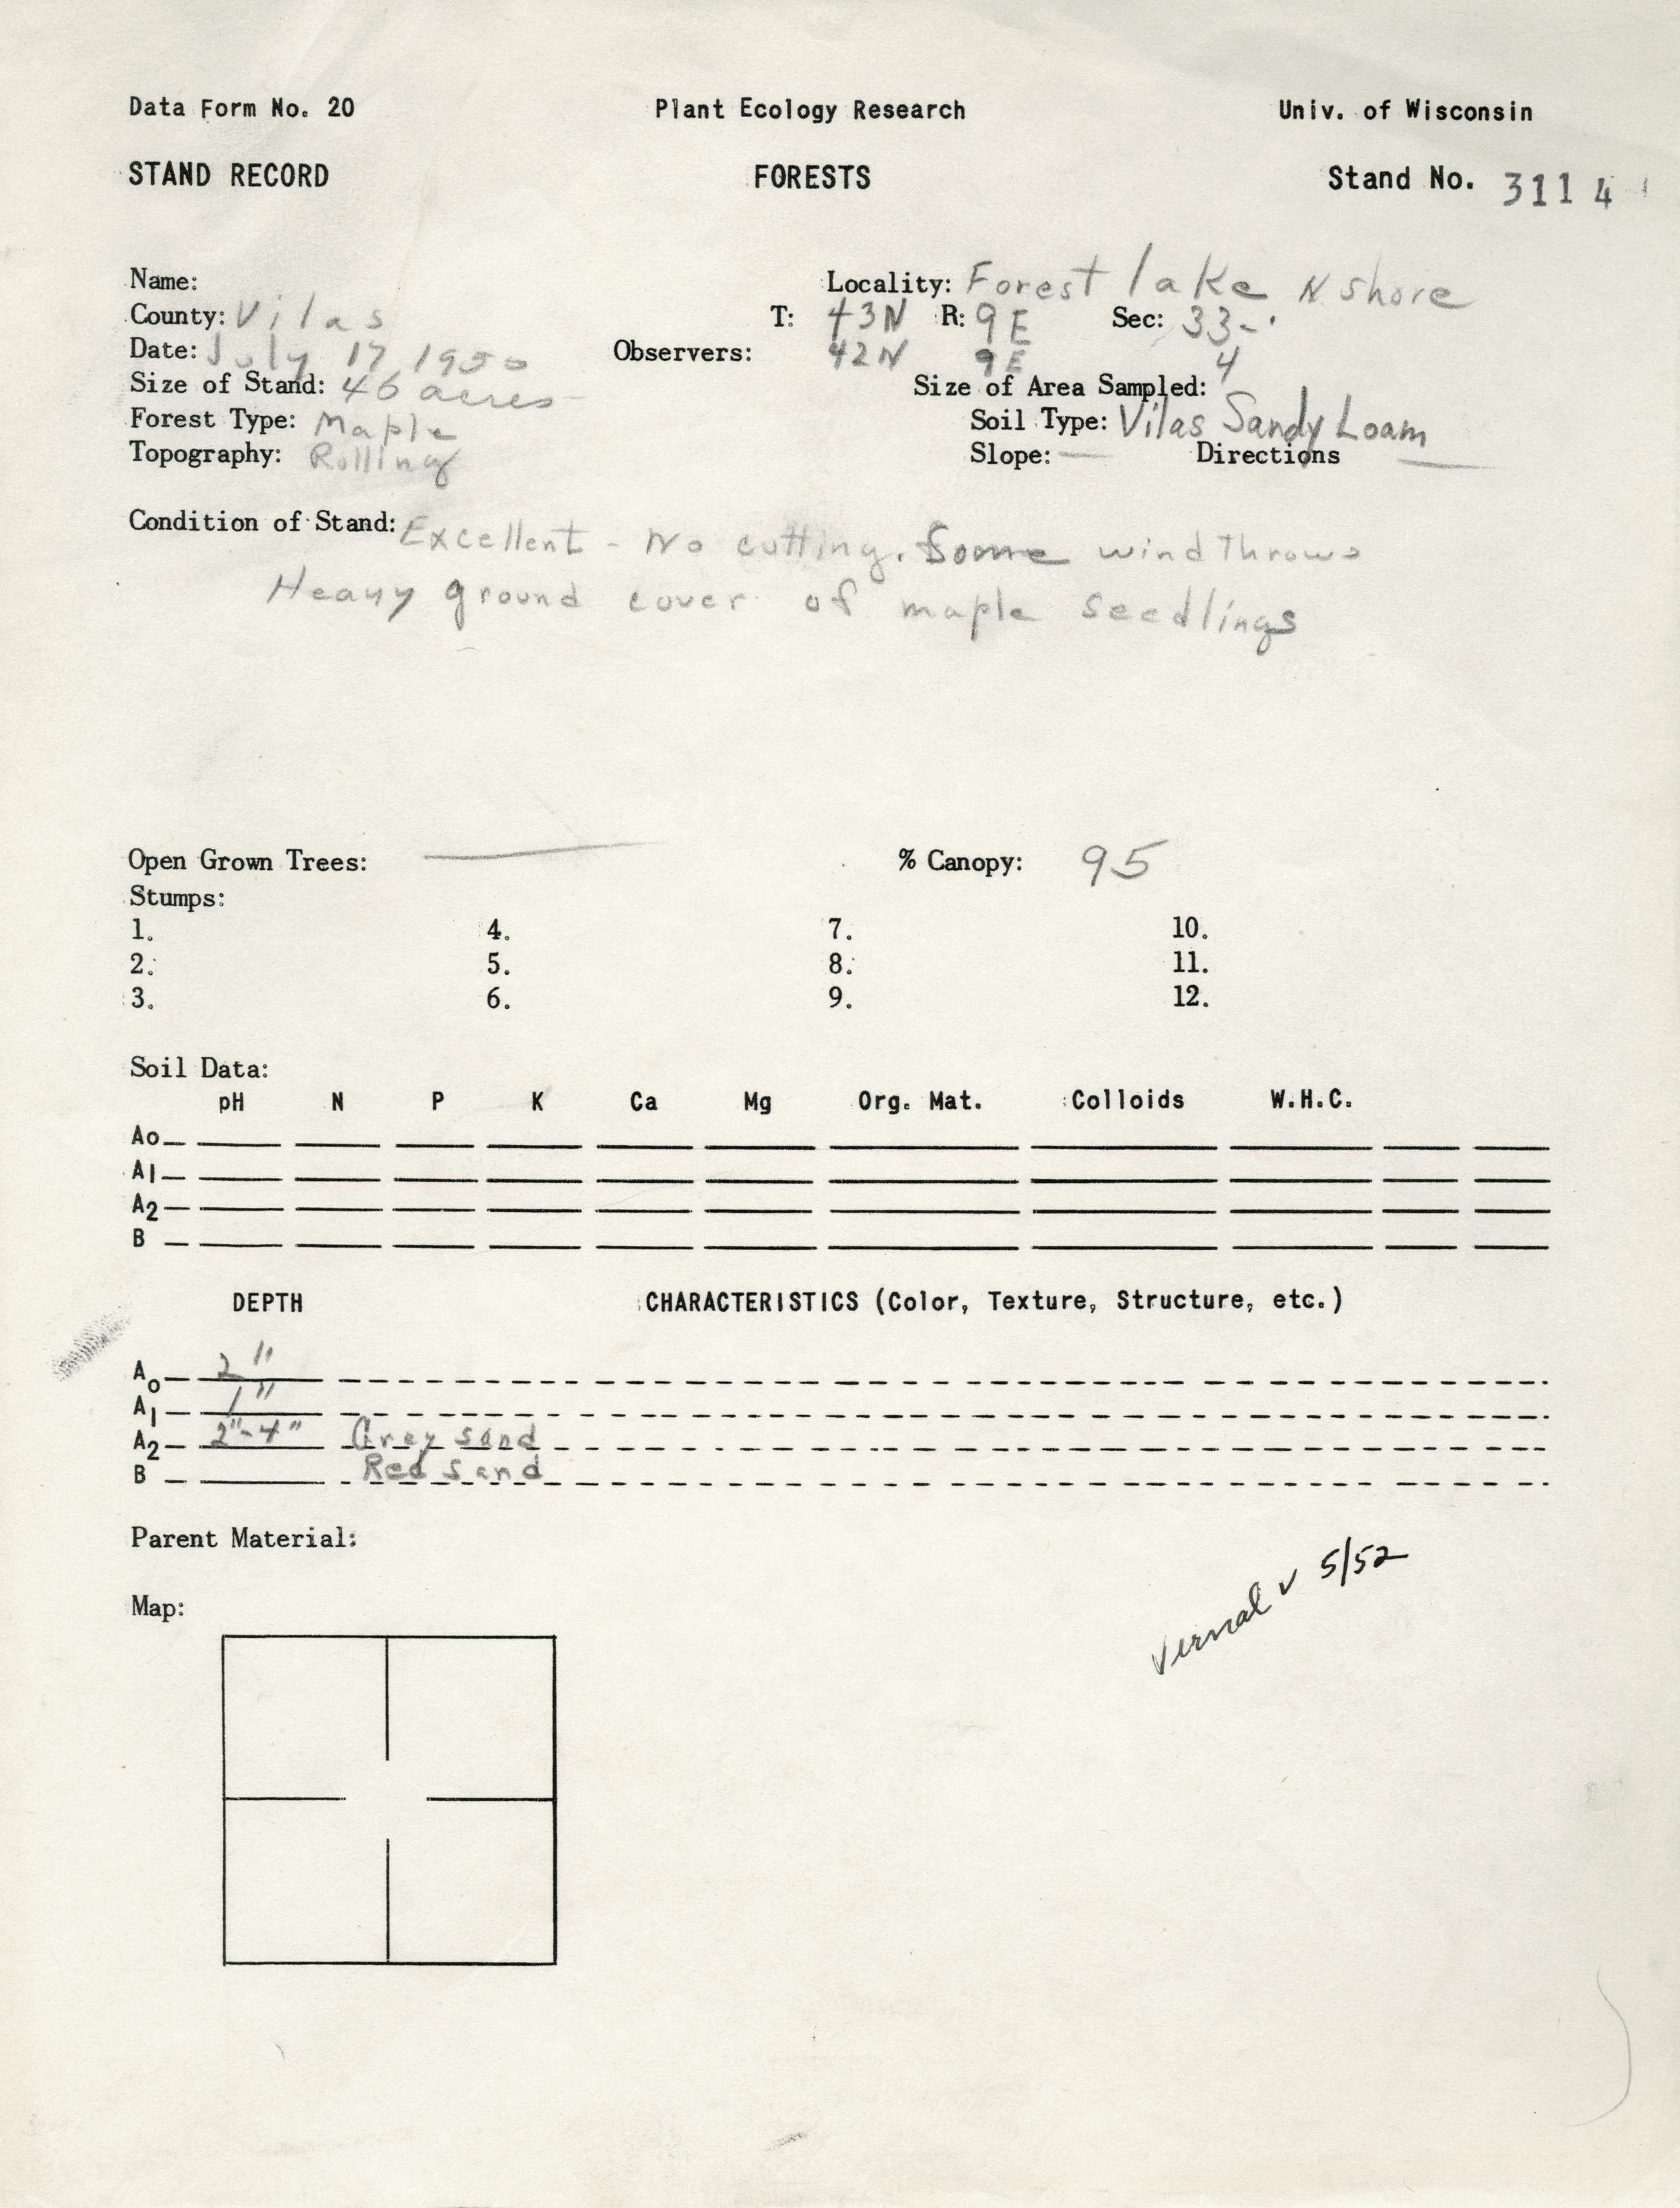 Data Form No. 20 Plant Ecology Research Univ. of Wisconsin
STAND RECORD FORESTS Stand No. 3114
Name: Locality: Forest lake N shore
County: Vilas T: 43N R: 9E Sec: 33-
Date: July 17 1950 Observers: 42N 9E 4
Size of Stand: 46 acres Size of Area Sampled:
Forest Type: Maple Soil Type: Vilas Sandy Loam
Topography: Rolling Slope: — Directions —
Condition of Stand: Excellent - No cutting. Some wind Throws
Heavy ground cover of maple seedlings
Open Grown Trees: — % Canopy: 95
Stumps:
1. 4. 7. 10.
2. 5. 8. 11.
3. 6. 9. 12.
Soil Data:
pH N P K Ca Mg Org. Mat. Colloids W.H.C.
Ao
A1
A2
B
DEPTH CHARACTERISTICS (Color, Texture, Structure, etc.)
Ao 2"
A1 1"
A2 2"-4" Grey sand
B Red sand
Parent Material:
Vernal v 5/52
Map: